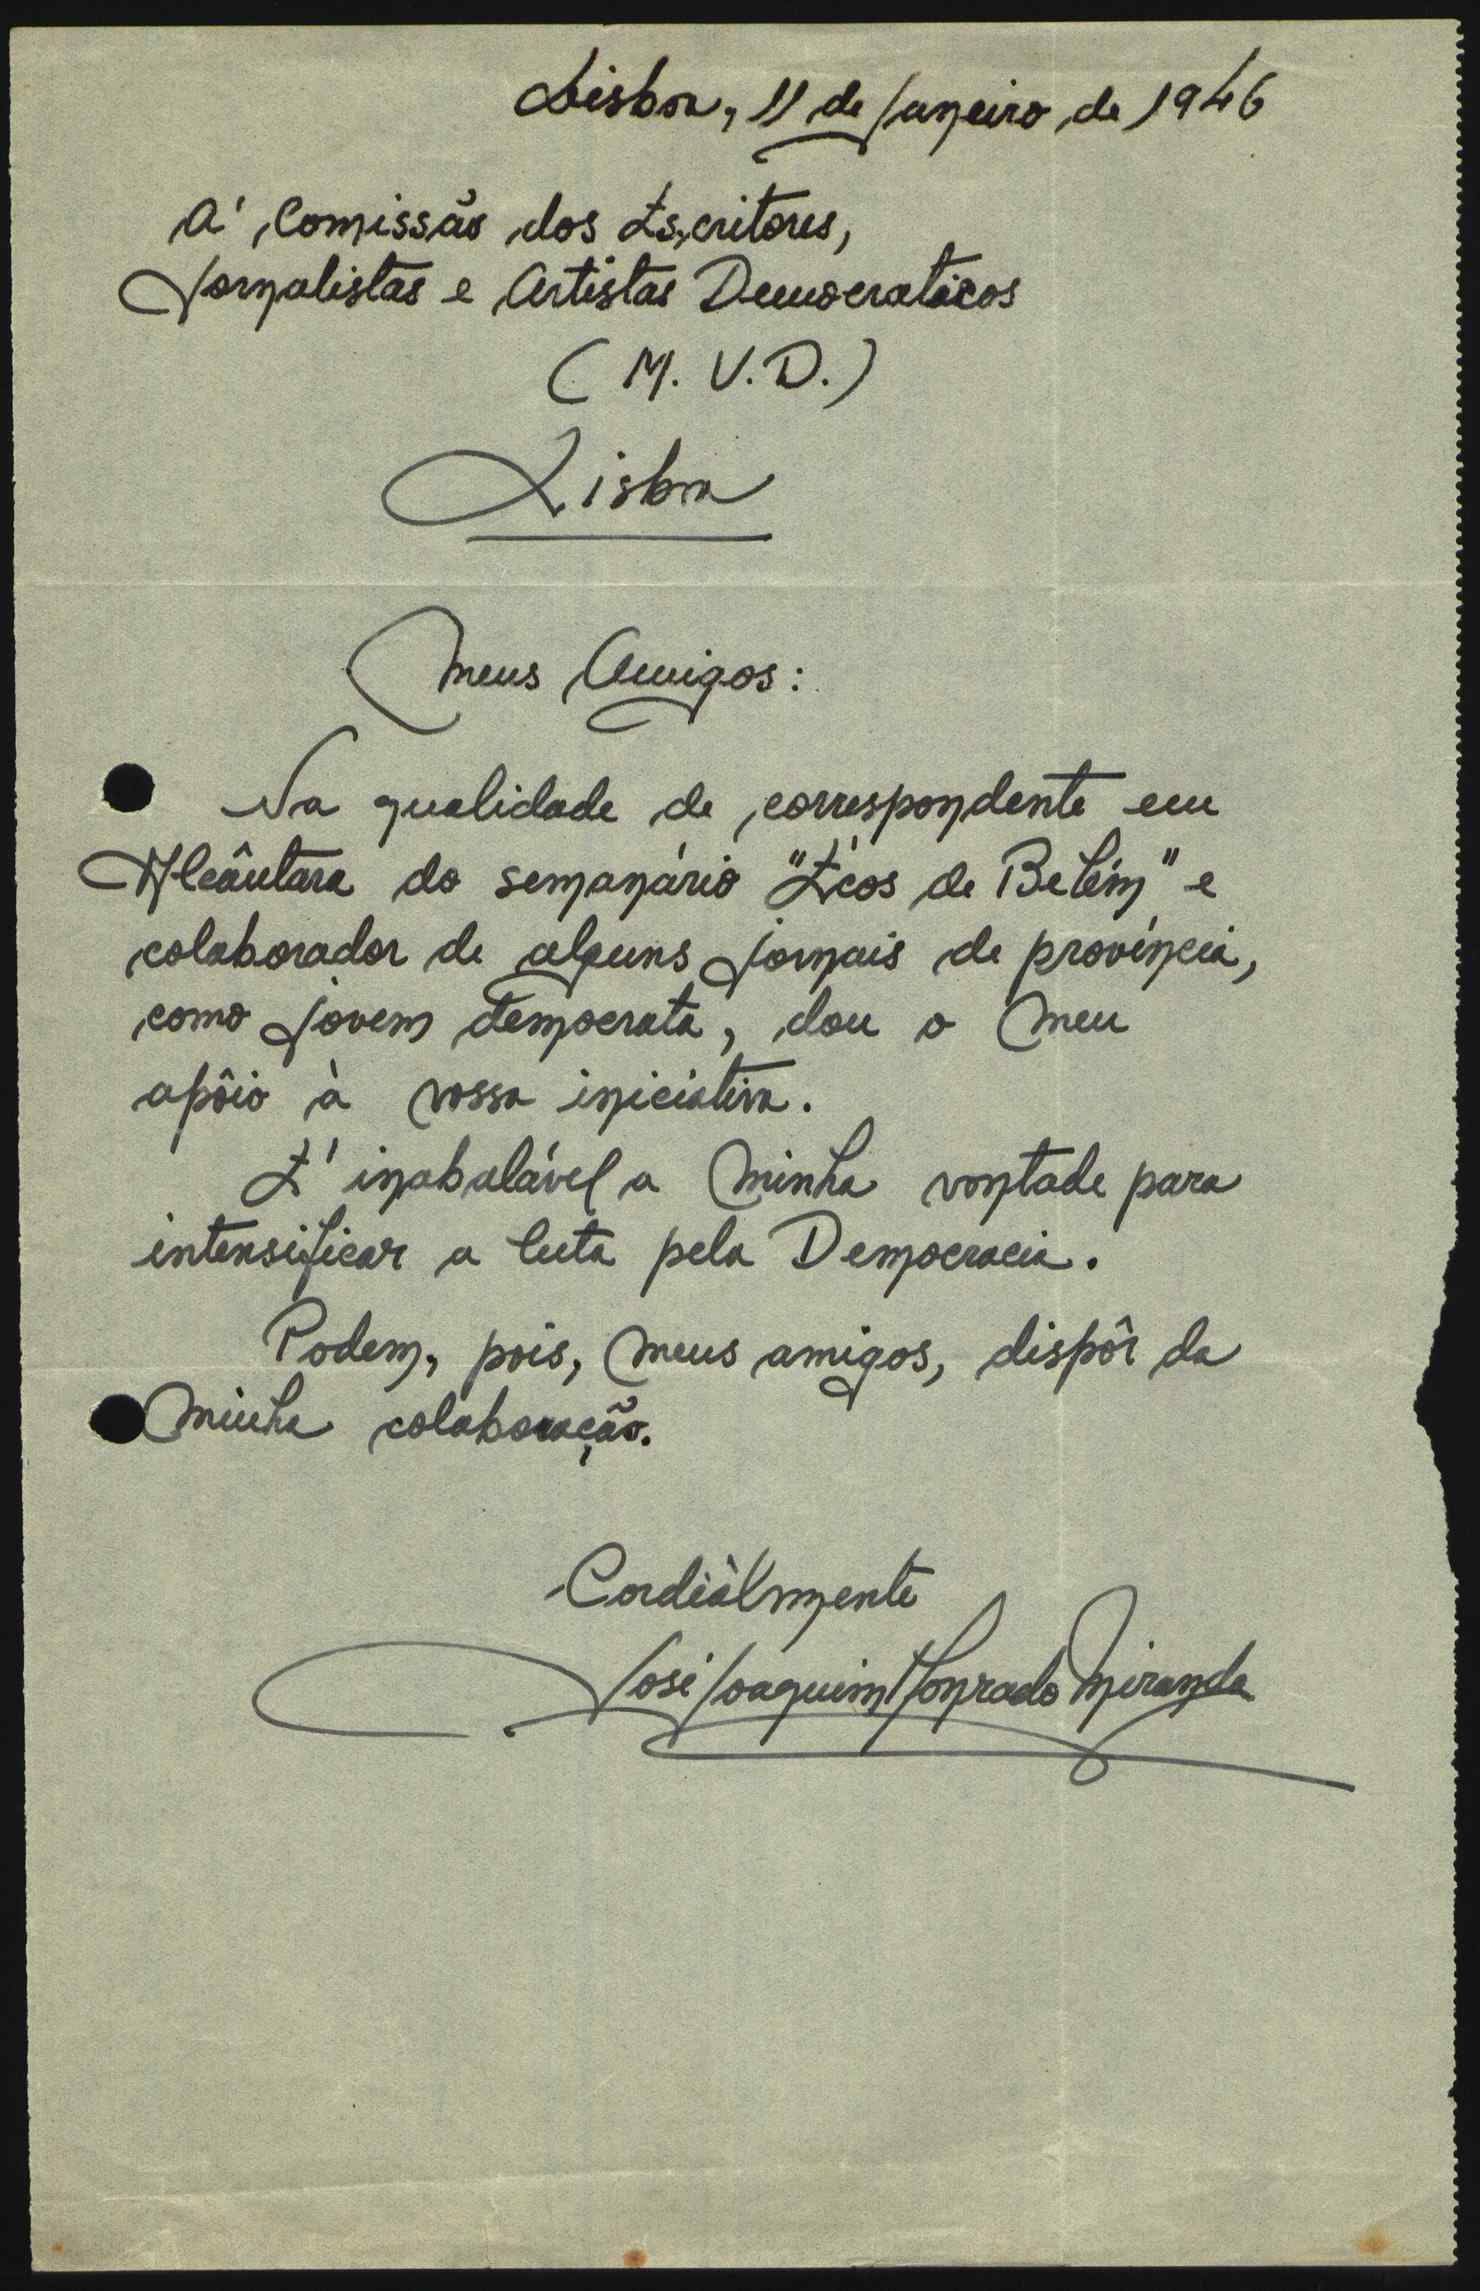 Lisboa, 11 de Janeiro de 1946
A' Comissão dos Escritores,
Jornalistas e Artistas Democraticos
(M. V. D.)
Lisboa
Meus Amigos:
Na qualidade de correspondente em
Alcântara do semanário "Écos de Belém" e
colaborador de alguns jornais de província,
como jovem democrata, dou o meu
apôio à vossa iniciativa.
E' inabalável a minha vontade para
intensificar a luta pela Democracia.
Podem, pois, meus amigos, dispôr da
minha colaboração.
Cordiàlmente
José Joaquim Honrado Miranda